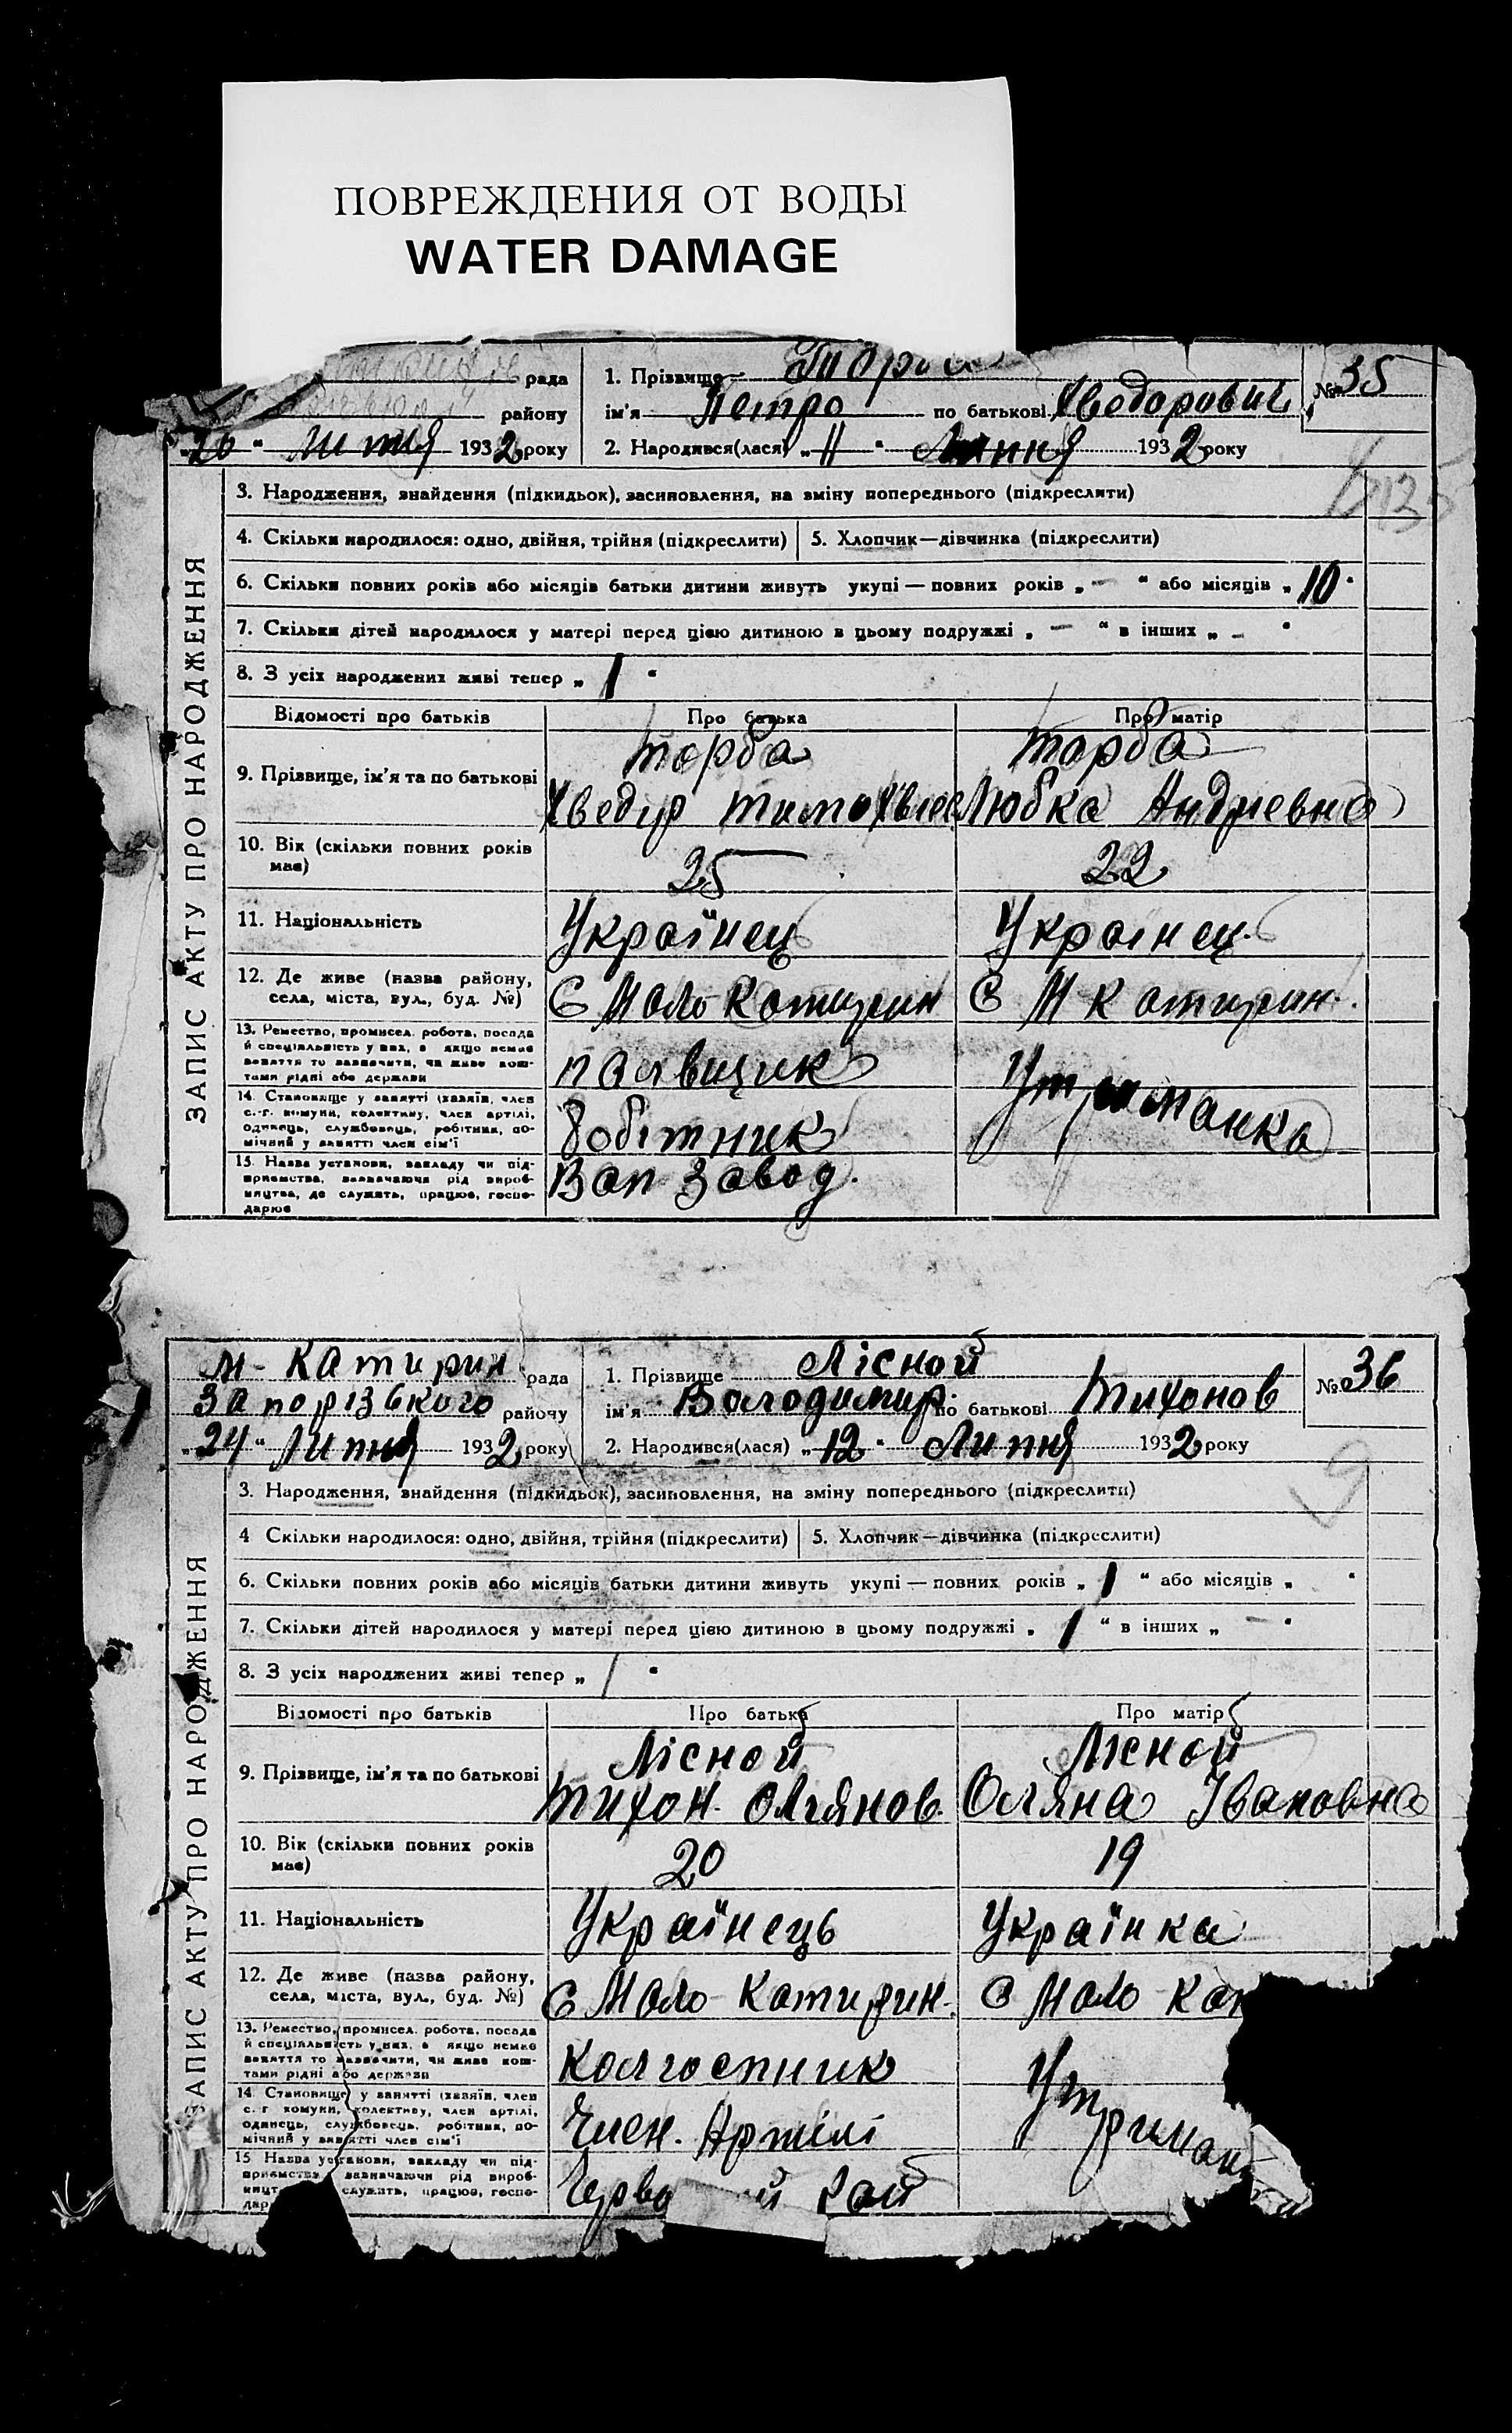 ПОВРЕЖДЕНИЯ ОТ ВОДЫ
WATER DAMAGE
рада
району
"20" Липня 1932 року
1. Прізвище Торба
ім'я Петро по батькові Хведорович
2. Народився(лася) "11" Липня 1932 року
№ 35
ЗАПИС АКТУ ПРО НАРОДЖЕННЯ
3. Народження, знайдення (підкидьок), засиновлення, на зміну попереднього (підкреслити)
4. Скільки народилося: одно, двійня, трійня (підкреслити) 5. Хлопчик—дівчинка (підкреслити)
6. Скільки повних років або місяців батьки дитини живуть укупі — повних років „ — “ або місяців „ 10 "
7. Скільки дітей народилося у матері перед цією дитиною в цьому подружжі „ — “ в інших „ — "
8. З усіх народжених живі тепер „ 1 "
Відомості про батьків Про батька Про матір
9. Прізвище, ім'я та по батькові
Торба
Хведір
Торба
Любка Андріевна
10. Вік (скільки повних років має)
25 22
11. Національність
Українец Українец
12. Де живе (назва району, села, міста, вул., буд. №)
С Мало Катирин С М Катирин.
13. Ремество, промисел, робота, посада й спеціальність у них, а якщо немає заняття то зазначити, чи живе коштами рідні або держави
палвщик Утриманка
14. Становище у занятті (хазяїн, член с.-г. комуни, колективу, член артілі, одинець, службовець, робітник, помічний у занятті член сім'ї
Робітник
15. Назва установи, закладу чи підприємства, зазначаючи рід виробництва, де служить, працює, господарює
Вап Завод.
М- Катирин рада
Запорізького району
"24" Липня 1932 року
1. Прізвище Лісной
ім'я Володимир. по батькові Тихонов
2. Народився(лася) „12" Липня 1932 року
№ 36
ЗАПИС АКТУ ПРО НАРОДЖЕННЯ
3. Народження, знайдення (підкидьок), засиновлення, на зміну попереднього (підкреслити)
4 Скільки народилося: одно, двійня, трійня (підкреслити) 5. Хлопчик—дівчинка (підкреслити)
6. Скільки повних років або місяців батьки дитини живуть укупі — повних років „ 1 “ або місяців „ "
7. Скільки дітей народилося у матері перед цією дитиною в цьому подружжі „ 1 “ в інших „ — "
8. З усіх народжених живі тепер „ 1 "
Відомості про батьків Про батька Про матір
9. Прізвище, ім'я та по батькові
Лісной
Тихон.
Лісной
Оляна Івановна
10. Вік (скільки повних років має)
20 19
11. Національність
Українець Українка
12. Де живе (назва району, села, міста, вул., буд. №)
С Мало Катирин. С Мало Кат
13. Ремество, промисел, робота, посада й спеціальність у них, а якщо немає заняття то зазначити, чи живе коштами рідні або держави
Колгоспник Утриман
14. Становище у занятті (хазяїн, член с.-г. комуни, колективу, член артілі, одинець, службовець, робітник, помічний у занятті член сім'ї
Член. Артілі
15 Назва установи, закладу чи підприємства, зазначаючи рід виробницт служить, працює, госпо-
дар
Черво й